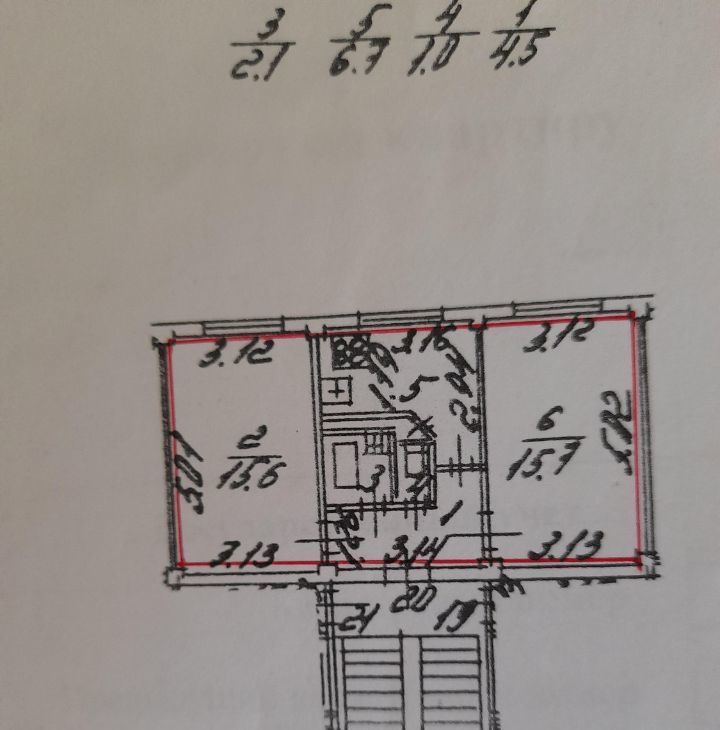 3 5 4 1
2.1 6.7 1.0 4.5
3.12 3.16 3.12
5
2 6
15.6 15.7
5.01 5.02
3 4
1
3.13 3.14 3.13
20
21 19